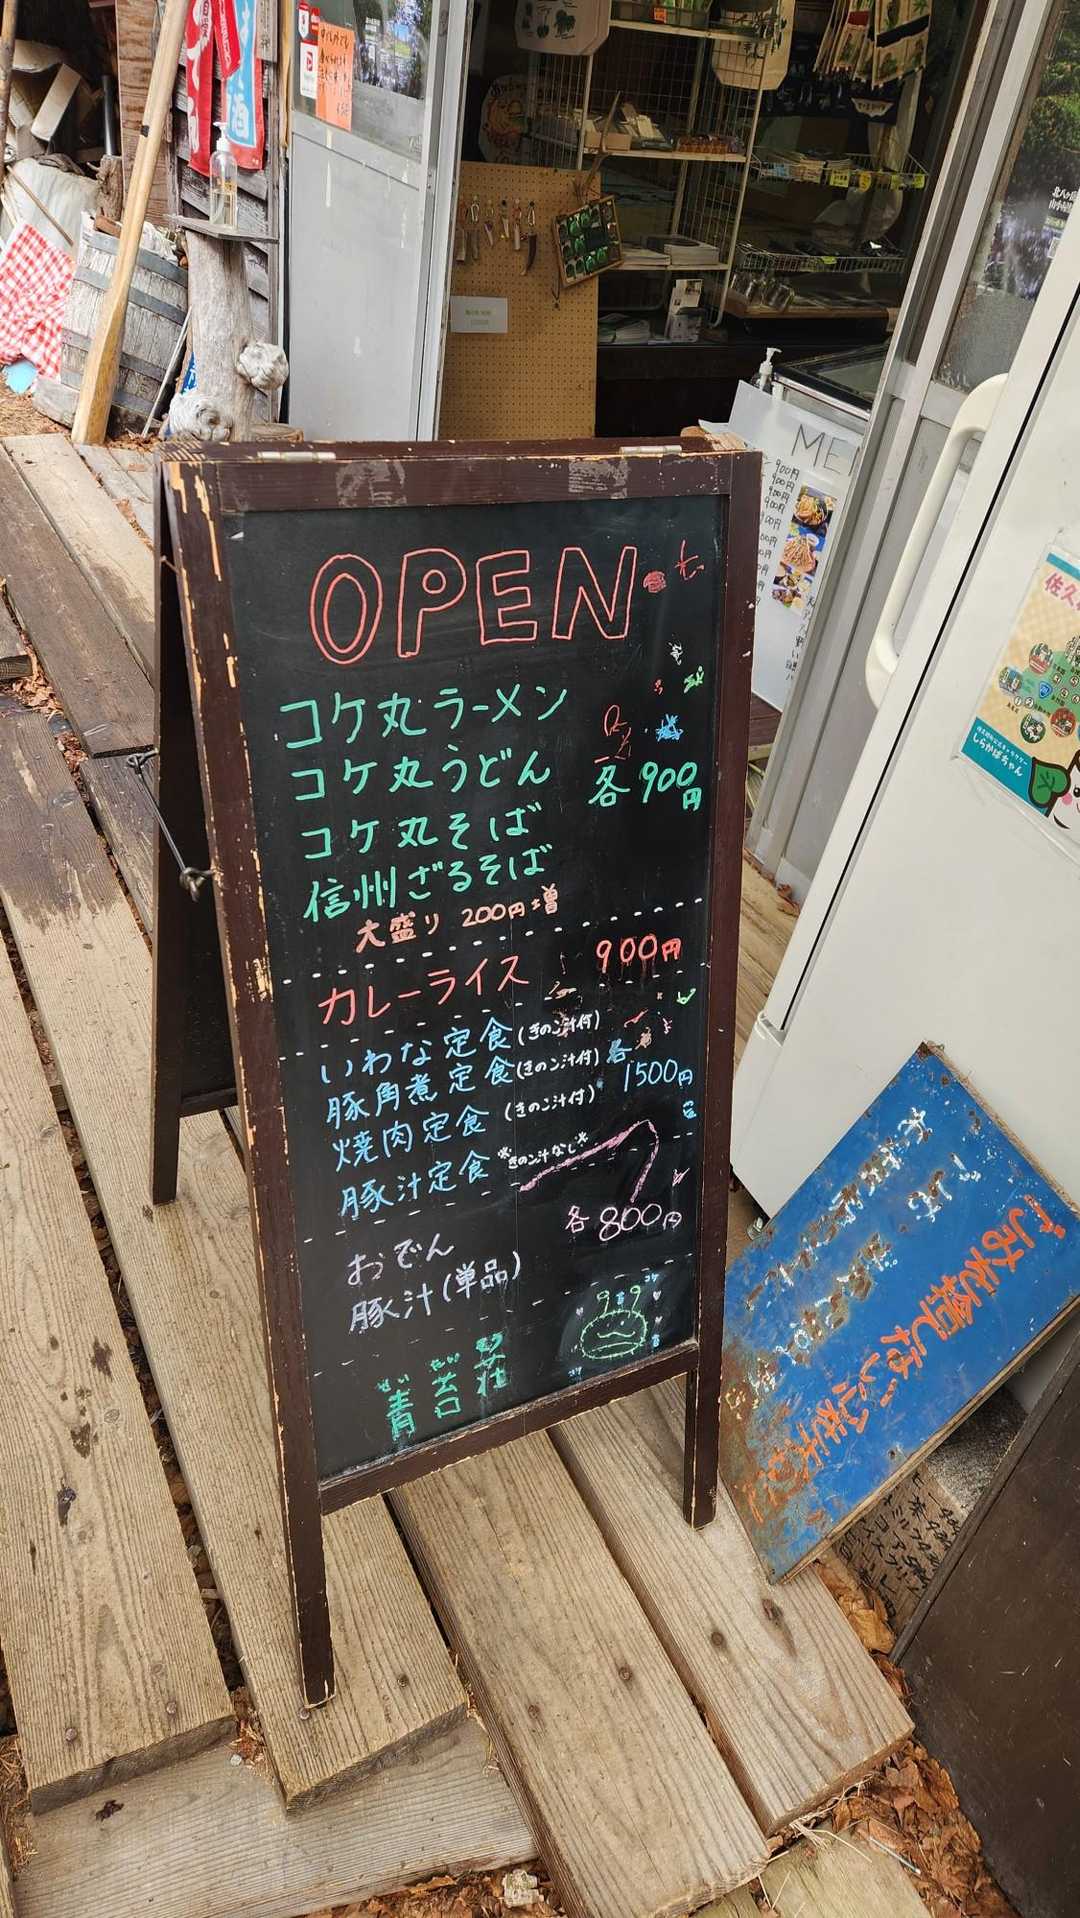 OPEN
コケ丸ラーメン
コケ丸うどん
各900円
コケ丸そば
信州ざるそば
大盛り 200円増
カレーライス 900円
いわな定食(きのこ汁付)
豚角煮定食(きのこ汁付)
各1500円
焼肉定食(きのこ汁付)
豚汁定食 *きのこ汁なし*
おでん
各800円
豚汁(単品)
青苔荘
コケ
酒
ME
900円
900円
900円
900円
佐久
しらかばちゃん
ごみを捨てないで